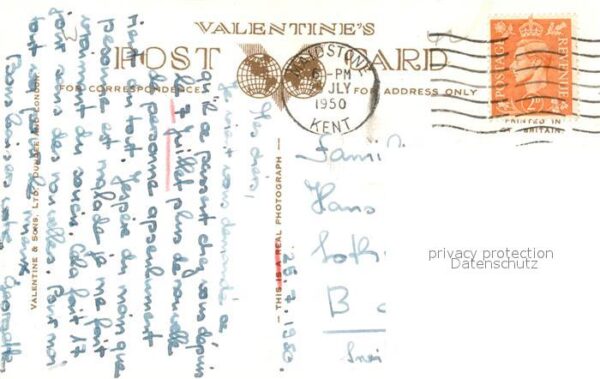 VALENTINE'S
POST CARD
FOR CORRESPONDENCE
FOR ADDRESS ONLY
MAIDSTONE
6 - PM
JULY
1950
KENT
POSTAGE
REVENUE
2D
PRINTED IN
GT. BRITAIN
VALENTINE & SONS, LTD., DUNDEE AND LONDON
THIS IS A REAL PHOTOGRAPH
25.7.1950.
Mes chers,
Je vous demande ce
qu'il se passent chez vous depuis
le 7 juillet plus de nouvelle
de personne absolument
rien du tout j'espère du moins que
personne est malade ça me fait
vraiment du souci. Cela fait 17
jours sans des nouvelles. Pour moi
tout va pour le mieux
Bons baisers votre Georgette
Famil
Hans
Loth
B
privacy protection
Datenschutz